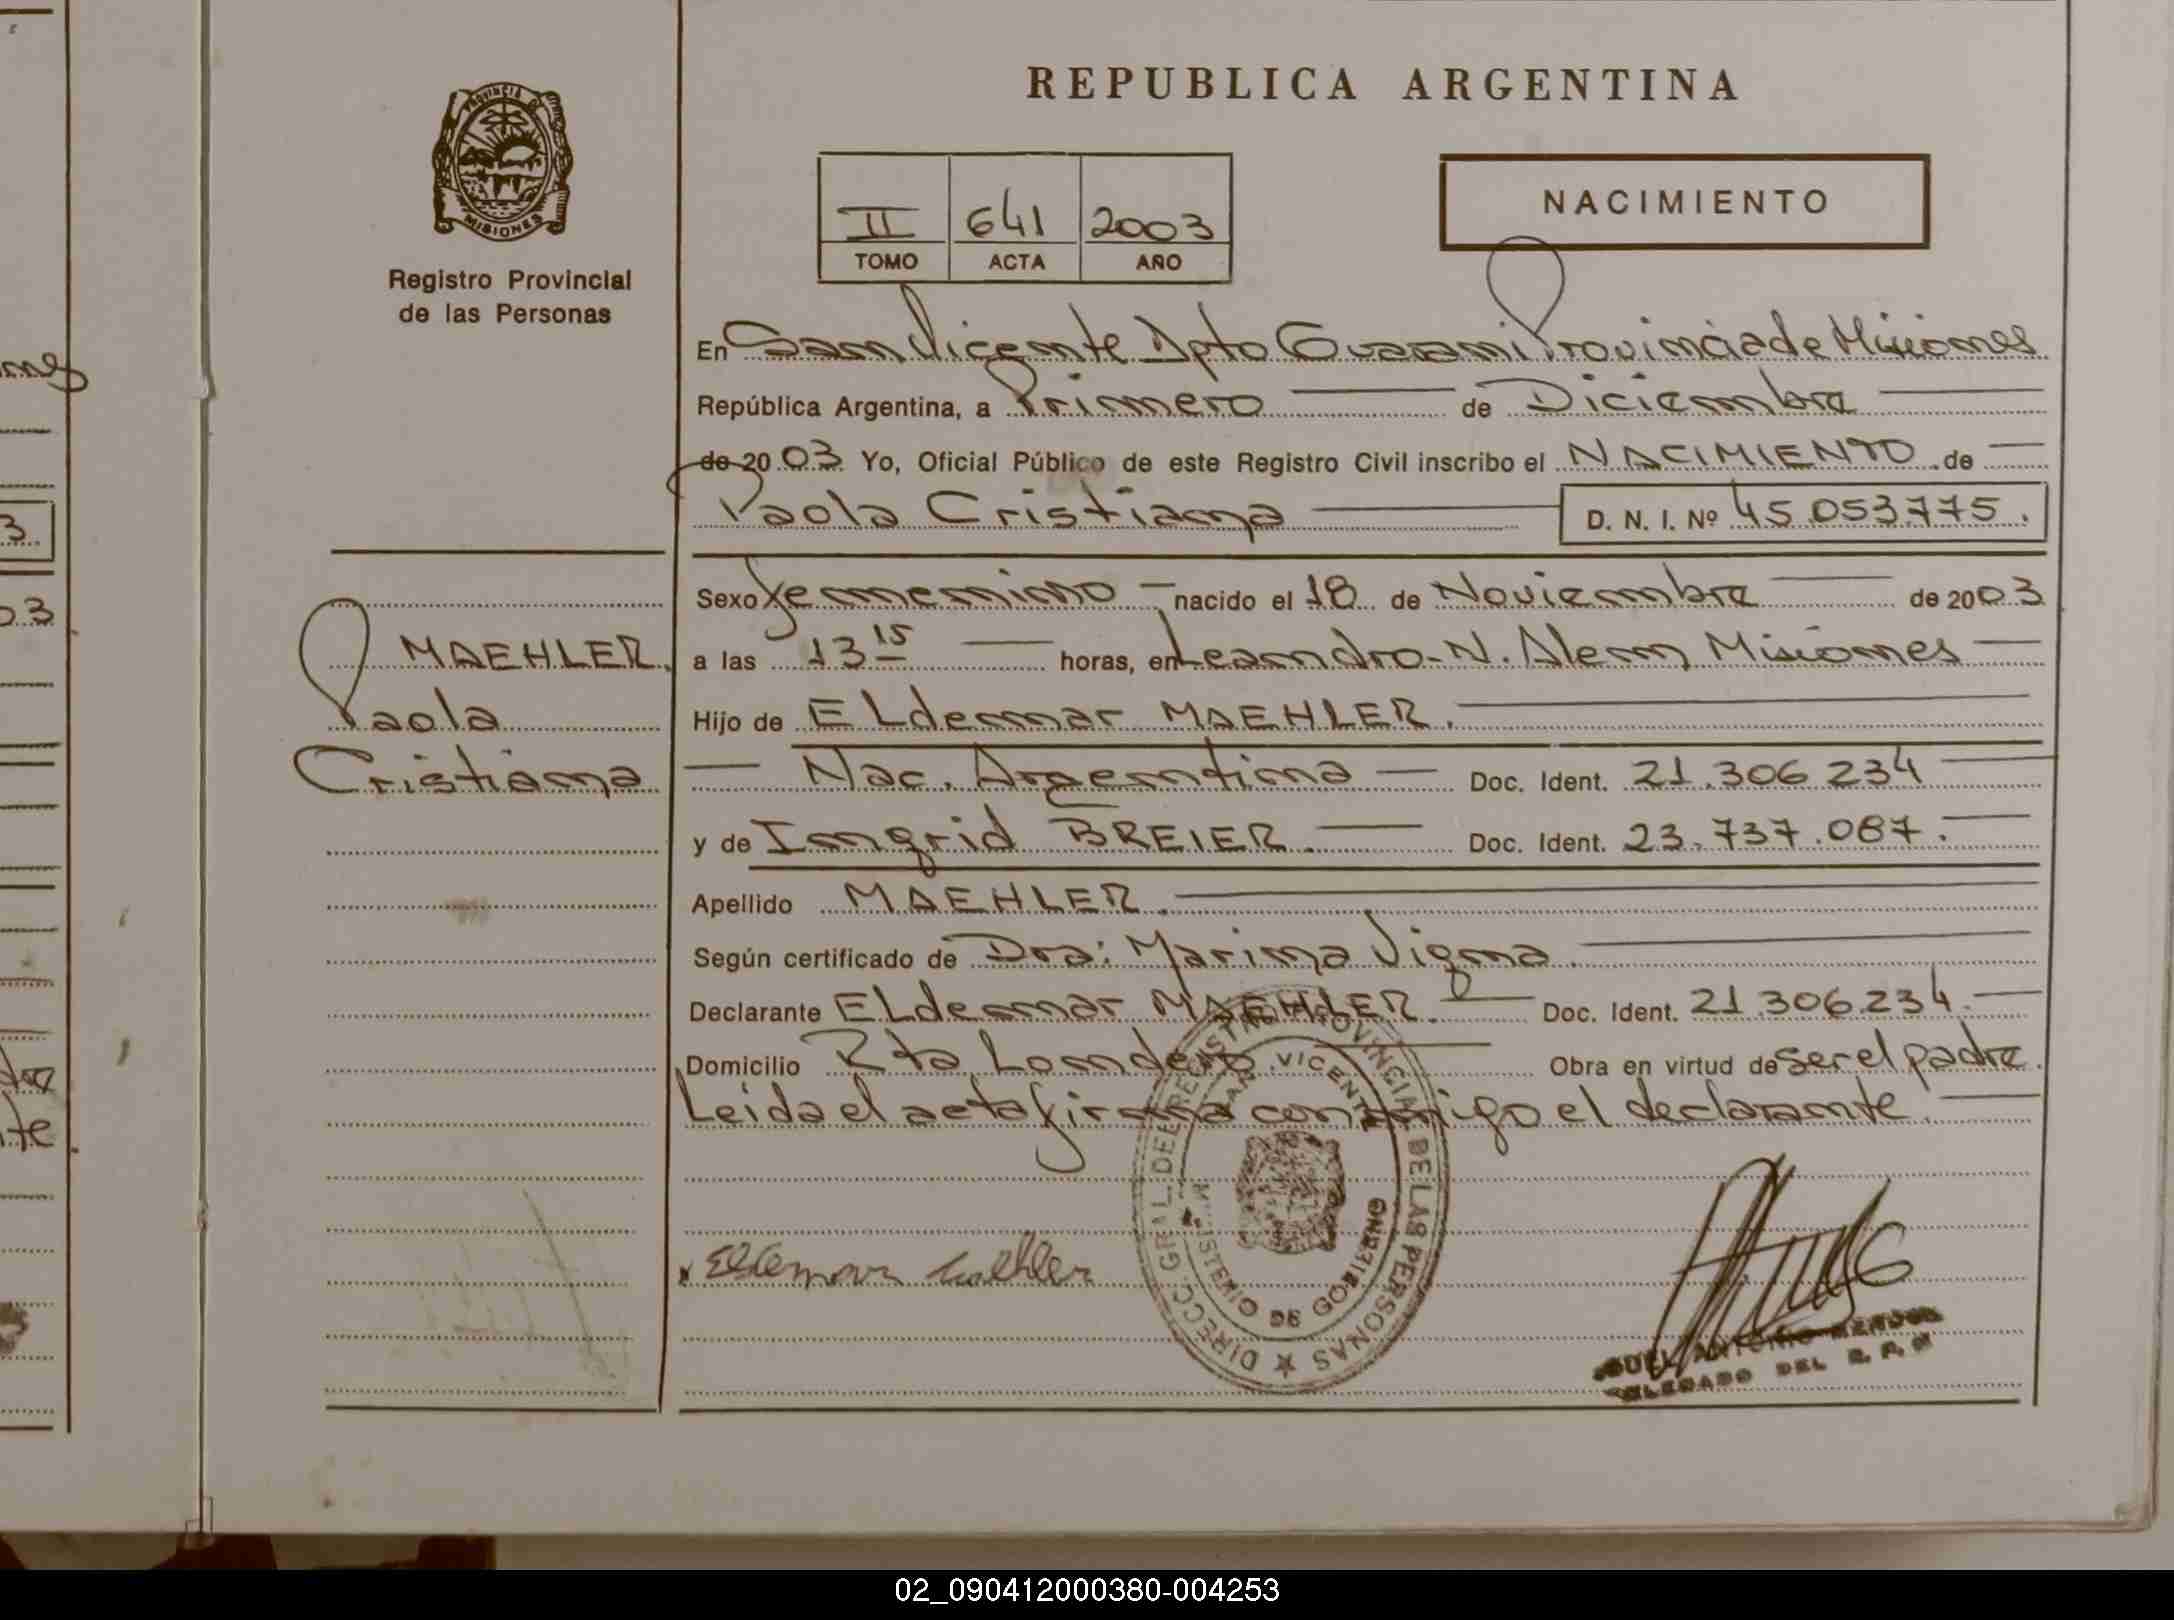 REPUBLICA ARGENTINA
PROVINCIA DE
MISIONES
Registro Provincial
de las Personas
II 641 2003
TOMO ACTA AÑO
NACIMIENTO
En San Vicente Dpto Guarani Provincia de Misiones
República Argentina, a Primero de Diciembre
de 2003 Yo, Oficial Público de este Registro Civil inscribo el NACIMIENTO de
Paola Cristiana D. N. I. Nº 45.053.775.
Sexo femenino nacido el 18 de Noviembre de 2003
MAEHLER
Paola
Cristiana
a las 13 15 horas, en Leandro-N. Alem Misiones
Hijo de ELdemar MAEHLER.
Nac. Argentina Doc. Ident. 21.306.234
y de Ingrid BREIER. Doc. Ident. 23.737.087.
Apellido MAEHLER.
Según certificado de Dra: Marina Vigna.
Declarante ELdemar MAEHLER. Doc. Ident. 21.306.234.
Domicilio Rta Londero Obra en virtud de ser el padre.
Leida el acta firma conmigo el declarante.
DIRECC. GRAL. DEL REGISTRO PROVINCIAL DE LAS PERSONAS
SAN VICENTE
MINISTERIO DE GOBIERNO
Eldemar Maehler
ANTONIO
DEL R. P. P
3
03
te
02_090412000380-004253